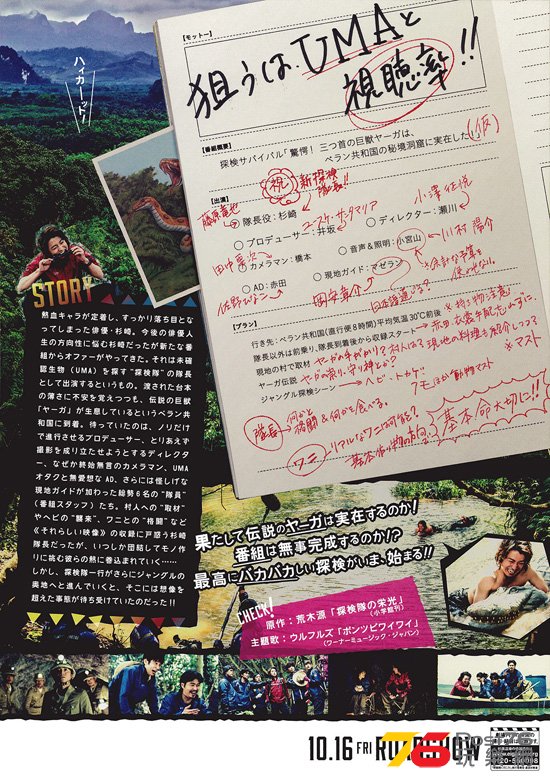 【モットー】
狙うは、UMAと
視聴率!!
ハイカーット!
【番組概要】
探検サバイバル「驚愕! 三つ首の巨獣ヤーガは、
ベラン共和国の秘境洞窟に実在した!(仮)
【出演】
祝
新探検
藤原竜也
隊長役:杉崎
ユースケ・サンタマリア
小澤征悦
プロデューサー:井坂
ディレクター:瀬川
田中要次
カメラマン:橋本
音声&照明:小宮山
川村陽介
AD:赤田
現地ガイド:マゼラン
佐野ひなこ
岡安章介
余計な予算を
使わせない。
日本語通じる?
【プラン】
行き先:ベラン共和国(直行便8時間)平均気温30℃前後
隊長以外は前乗り、隊長到着後から収録スタート
現地の村で取材
ヤーガ伝説
ジャングル探検シーン
ヘビ・トカゲ!!
現地の料理も紹介しつつ
*マスト
隊長
何かと格闘&何かを食べる。
ワニ
リアルなワニは可能?
基本命大切に!!
STORY
熱血キャラが定着し、すっかり落ち目と
なってしまった俳優・杉崎。今後の俳優人
生の方向性に悩む杉崎だったが新たな番
組からオファーがやってきた。それは未確
認生物(UMA)を探す“探検隊”の隊長
として出演するというもの。渡された台本
の薄さに不安を覚えつつも、伝説の巨獣
「ヤーガ」が生息しているというベラン共和
国に到着。待っていたのは、ノリだけ
で進行させるプロデューサー、とりあえず
撮影を成り立たせようとするディレクタ
ー、なぜか終始無言のカメラマン、UMA
オタクと無愛想なAD、さらには怪しげな
現地ガイドが加わった総勢6名の“隊員”
(番組スタッフ)たち。村人への“取材”
やヘビの“襲来”、ワニとの“格闘”など
《それらしい映像》の収録に戸惑う杉崎
隊長だったが、いつしか団結してモノ作
りに挑む彼らの熱に巻き込まれていく……
しかし、探検隊一行がさらにジャングルの
奥地へと進んでいくと、そこには想像を
超えた事態が待ち受けていたのだった!!
果たして伝説のヤーガは実在するのか!
番組は無事完成するのか!?
最高にバカバカしい探検がいま、始まる!!
CHECK!
原作:荒木源「探検隊の栄光」
(小学館刊)
主題歌:ウルフルズ「ポンツビワイワイ」
(ワーナーミュージック・ジャパン)
10.16 FRI ROADSHOW